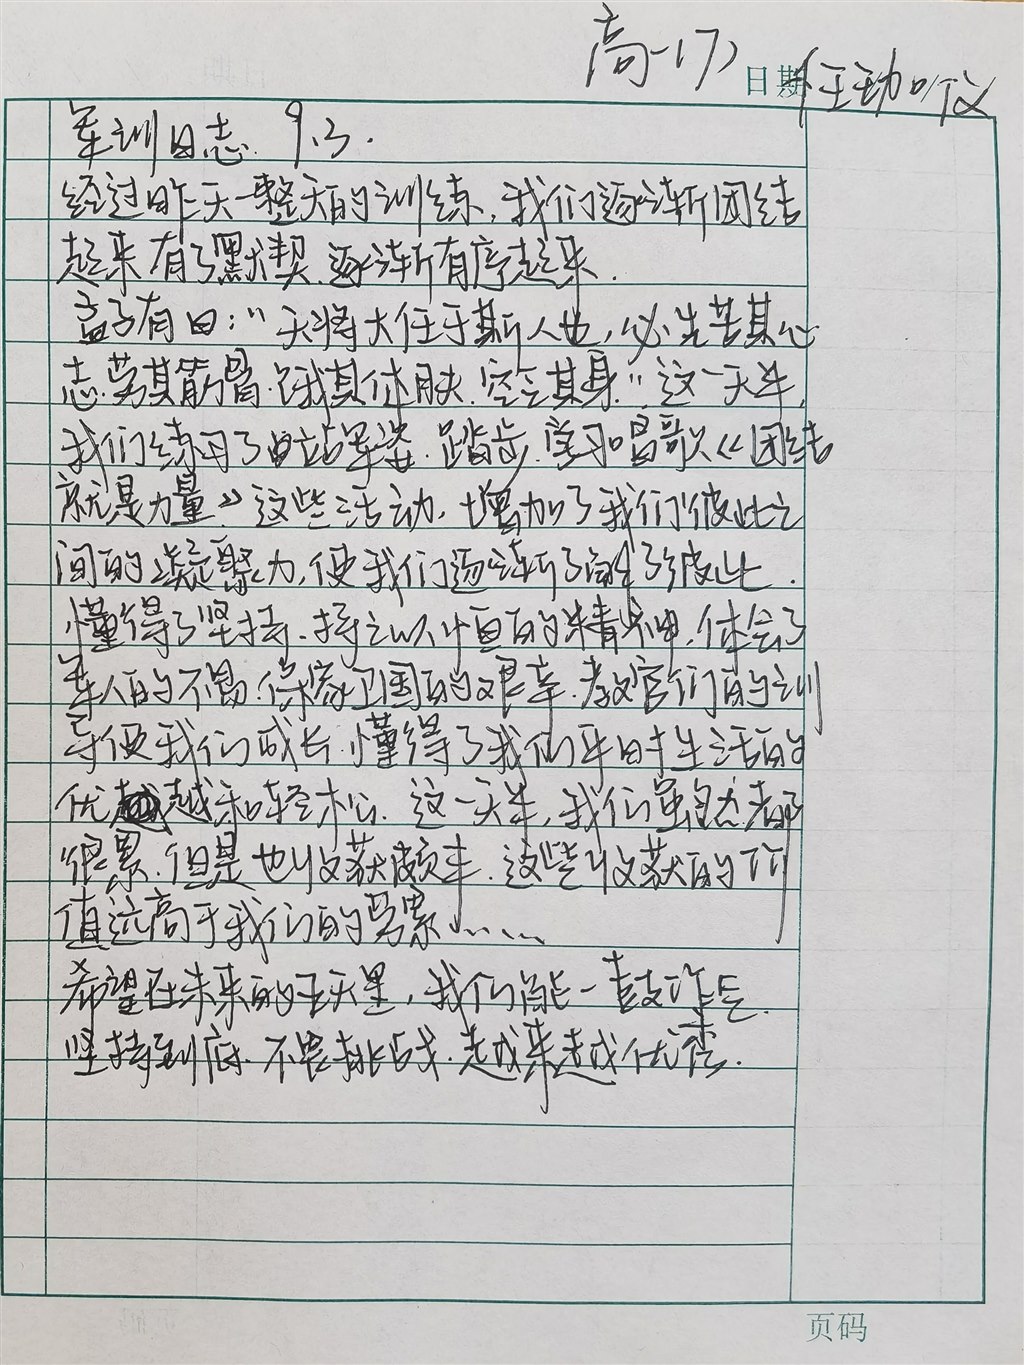 高一(7)
日期
军训日志 9.3.
经过昨天一整天的训练,我们逐渐团结
起来有了默契.逐渐有序起来.
孟子有曰:"天将大任于斯人也,必先苦其心
志.劳其筋骨.饿其体肤.空乏其身."这一天半,
我们练习了站军姿.踏步.学习唱歌《团结
就是力量》这些活动,增加了我们彼此之
间的凝聚力,使我们逐渐了解了彼此.
懂得了坚持.持之以恒的精神.体会了
军人的不易.保家卫国的艰辛.教官们的训
导使我们成长.懂得了我们平时生活的
优越和轻松.这一天半,我们虽然都
很累.但是也收获颇丰.这些收获的价
值远高于我们的劳累……
希望在未来的五天里,我们能一鼓作气.
坚持到底.不畏挑战.越来越优秀.
页码